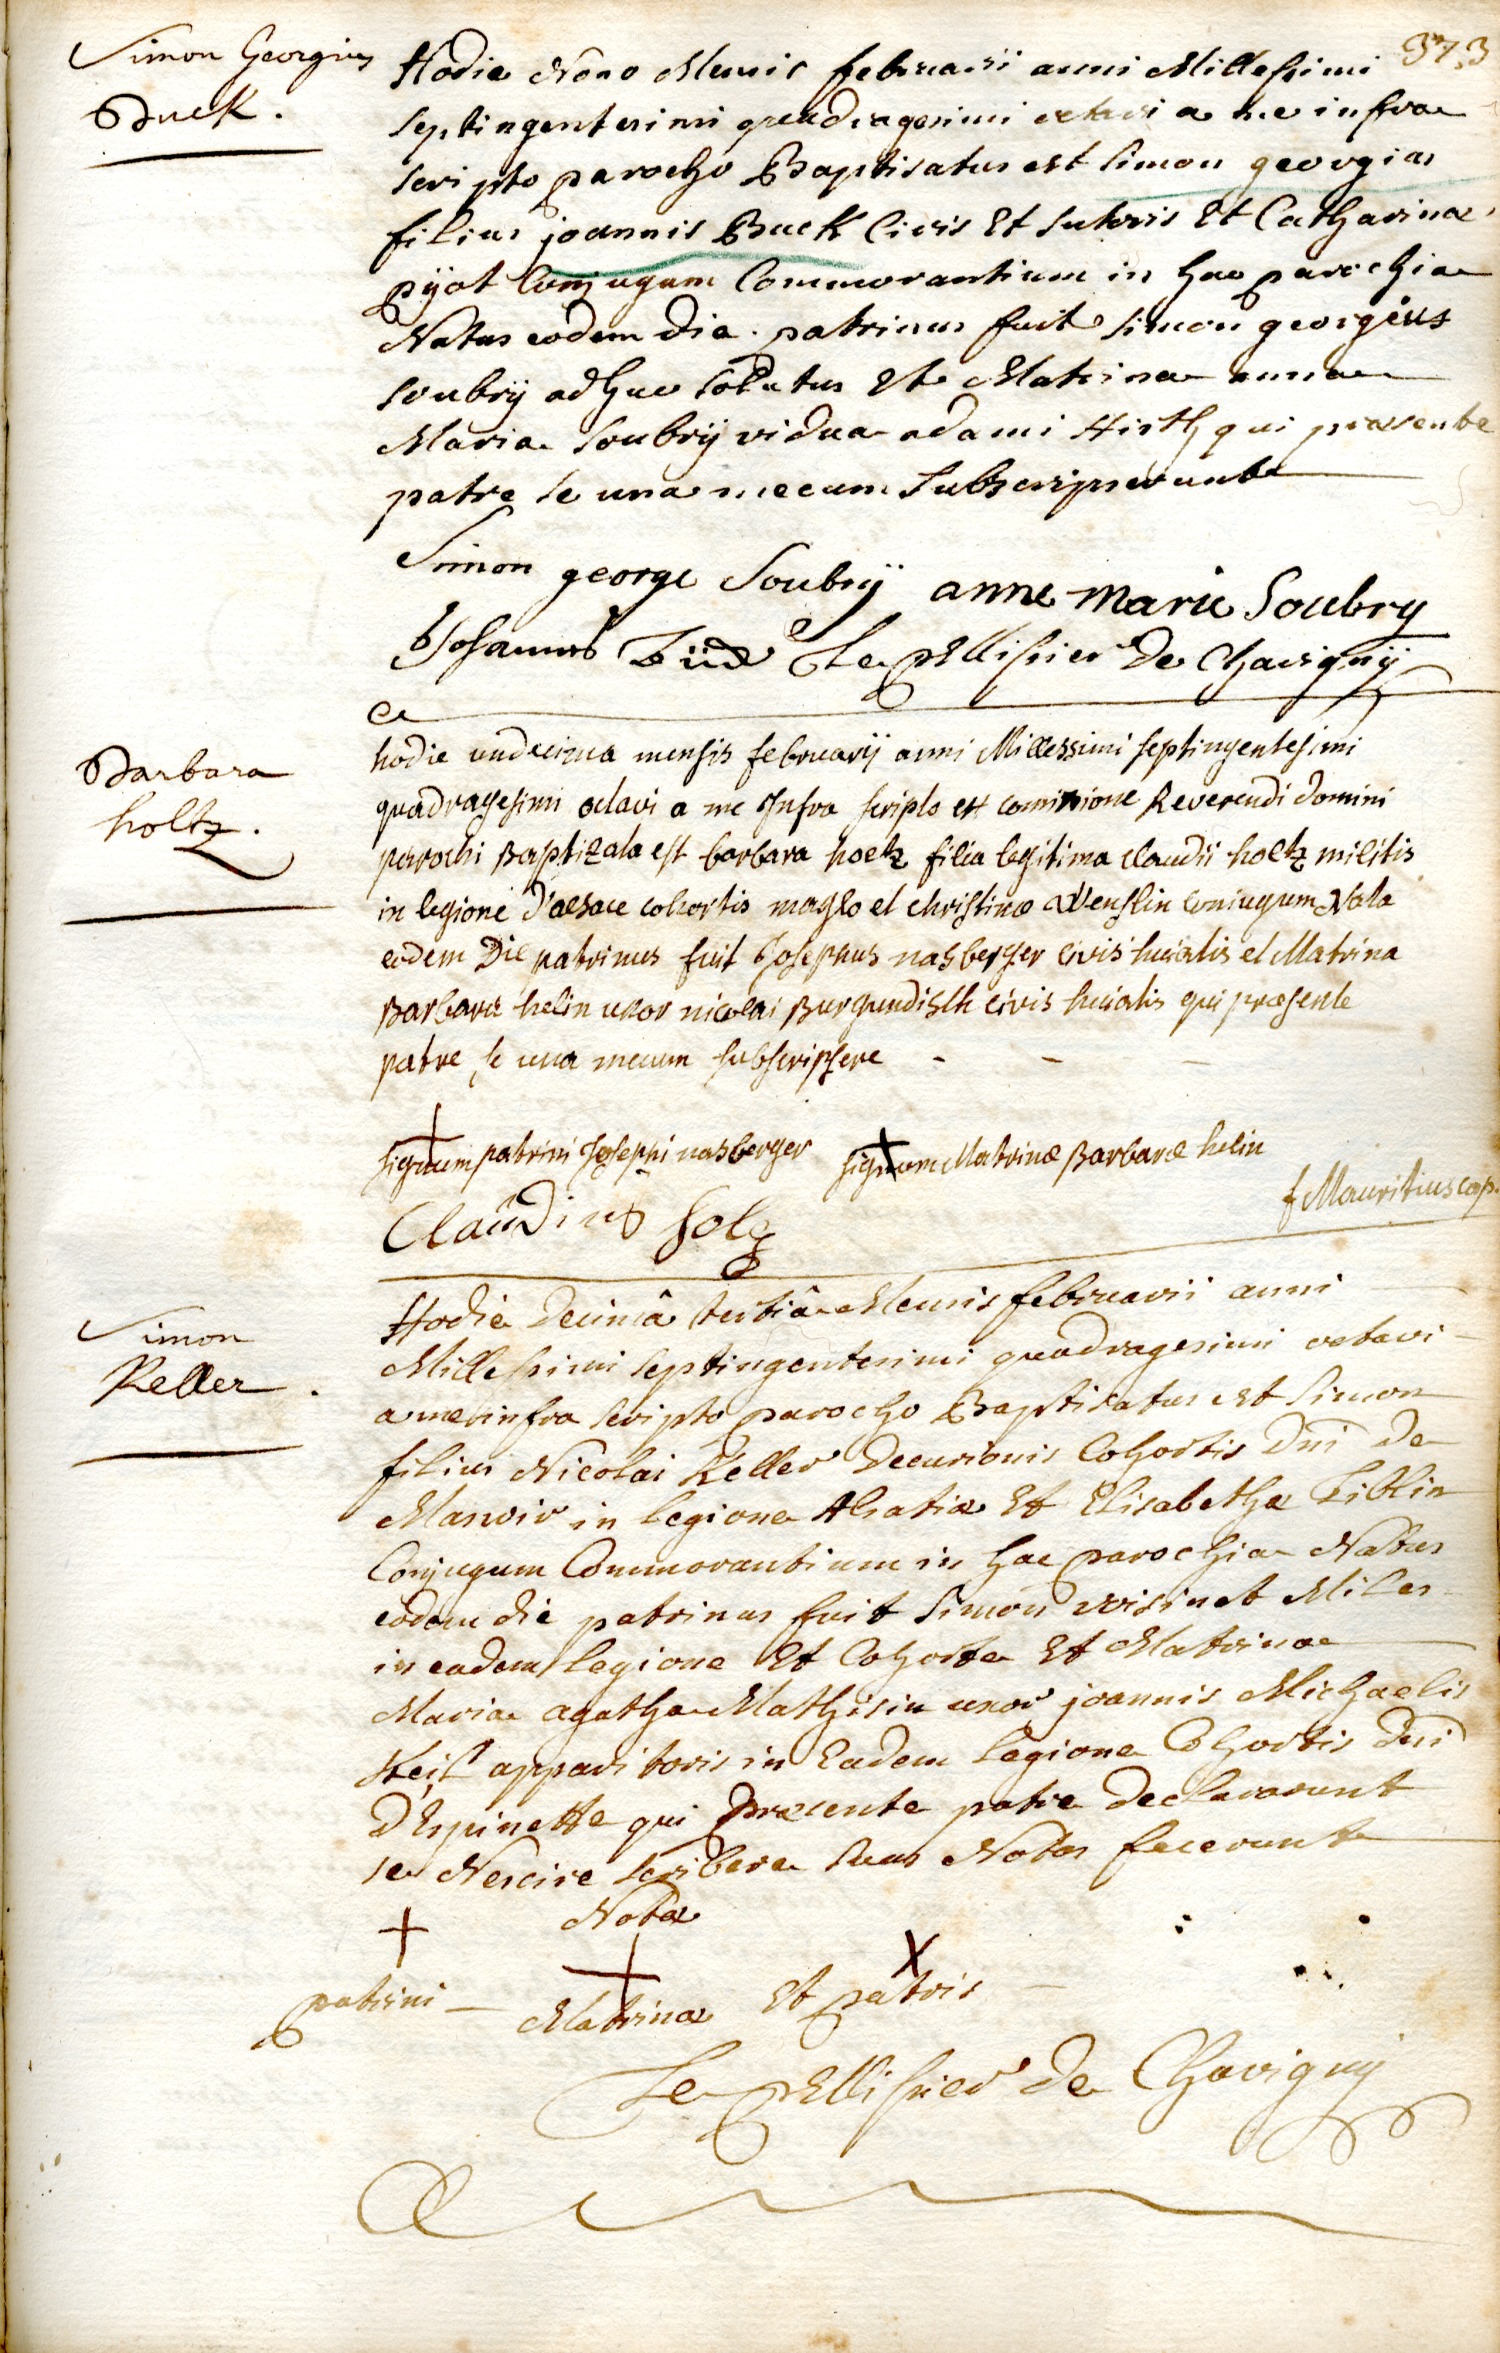 373
Simon Georgius
Buck.
Hodie Nono Mensis februarii anni Millesimi
septingentesimi quadragesimi octavi a me infra
scripto parocho Baptisatus est simon georgius
filius joannis Buck Civis Et sutoris Et Catharinæ
pÿot Conjugum Commorantium in hac parochia
Natus eodem die. patrinus fuit simon georgius
soubrÿ adhuc solutus Et Matrina anna
Maria soubrÿ vidua adami Hirth qui præsente
patre se una mecum subscripserunt
Simon george Soubrÿ anne marie Soubry
Johannes Le pellissier De Chavignÿ
Barbara
holtz.
hodie undecima mensis februarÿ anni Millessimi septingentesimi
quadragesimi octavi a me Infra scripto ex comissione Reverendi domini
parochi Baptizata est barbara holtz filia legitima claudii holtz militis
in legione d'alsace cohortis maglo et christinæ Wenslin coniugum Nata
eodem Die patrinus fuit Josephus nasberger civis huiatis et Matrina
Barbara helin uxor nicolai Burgundisth civis huiatis qui præsente
patre se una mecum subscripsere - - -
signum patrini Josephi nasberger signum Matrinæ Barbaræ helin
f Mauritius cap.
Claudius holtz
Simon
Keller.
Hodie Decimâ tertiâ Mensis februarii anni
Millesimi septingentesimi quadragesimi octavi
a me infra scripto parocho Baptisatus est simon
filius Nicolai Keller Decurionis Cohortis Dni de
Manoir in legione Alsatiæ Et Elisabethæ
Conjugum Commorantium in hac parochia Natus
eodem die patrinus fuit simon Miles
in eadem legione Et Cohorte Et Matrina
Maria agatha Mathisin uxor joannis Michaelis
apparitoris in Eadem legione Cohortis Dni
D'Espinette qui Præcente patre Declararunt
se Nescire scribere suas Notas fecerunt
Notæ
patrini — Matrinæ Et patris —
Le pellissier de Chavignÿ